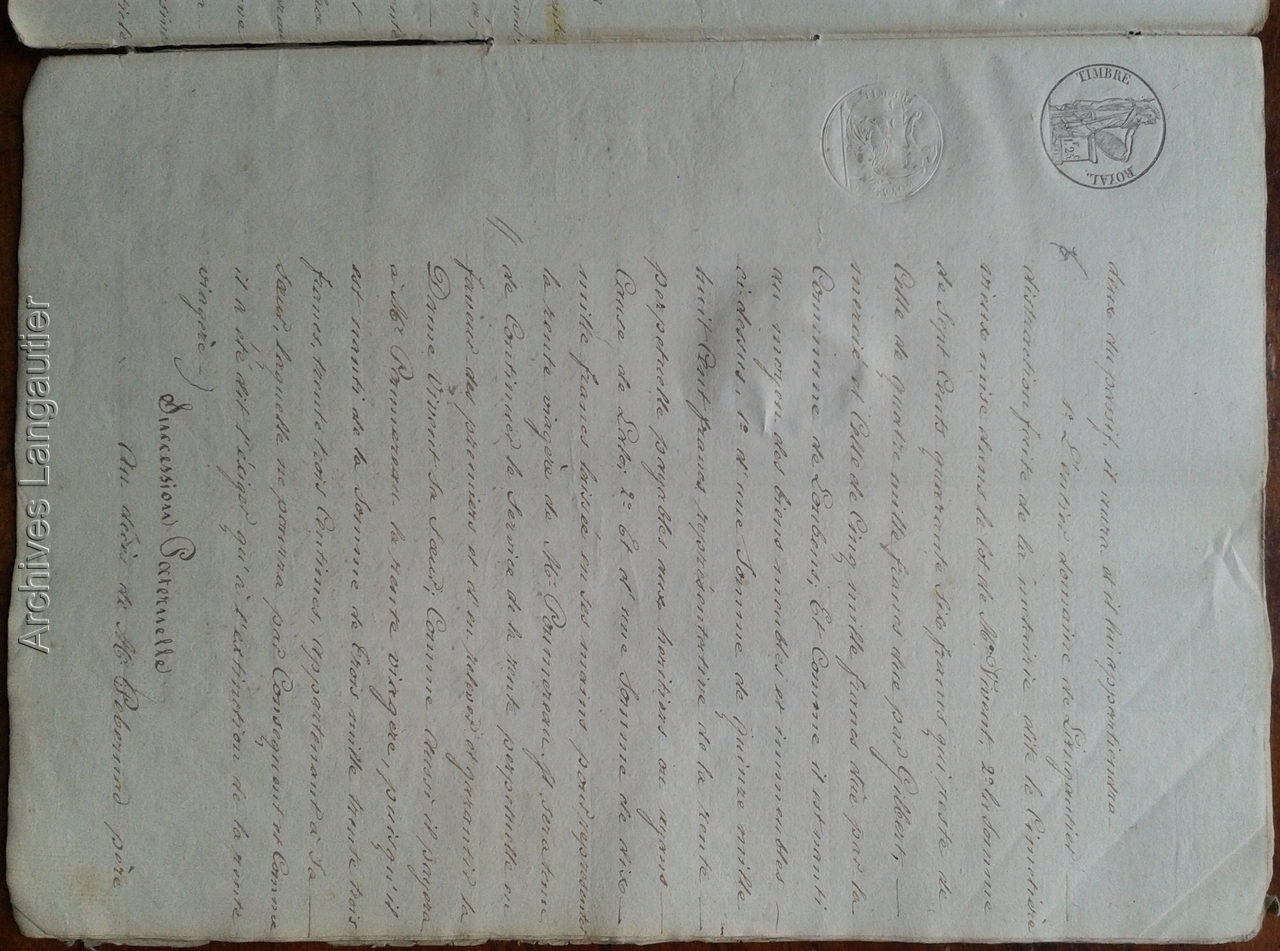 TIMBRE
ROYAL.
1F. 25C.
TIMBRE
deux du passif, il aura dit lui appartiendra
1.° L'entier domaine de Langautier
distraction faite de la métairie dite le Cimetière
vieux mise dans le lot de Mme Vivent, 2.° la somme
de Sept Cents quarante six francs qui reste de
Celle de quatre mille francs due par Gilbert,
mercié et Celle de Cinq mille francs düe par la
Commune de Loubens, Et Comme il est nanti
au moyen des biens meubles et immeubles
ci dessus, 1.° d'une Somme de quinze mille
huit Cent francs représentative de la rente
perpétuelle payables aux héritiers ou ayans
Cause de Lato, 2.° Et d'une Somme de dix
mille francs laissée en ses mains pour représenter
la rente viagère de Mr. Pommereau, il sera tenu
de Continuer le Service de la rente perpétuelle en
faveur des premiers et d'en relever et garantir la
Dame Vivent Sa Sœur, Comme Aussi il payera
à Mr. Pommereau la rente viagère, puisqu'il
est nanti de la Somme de trois mille trente trois
francs, trente trois Centimes, appartenant à Sa
Sœur, laquelle ne pourra par Conséquent et Comme
il a été dit l'exiger qu'à l'extinction de la rente
viagère.
Succession Paternelle
Au décès de Mr. Deborand père
Archives Langautier